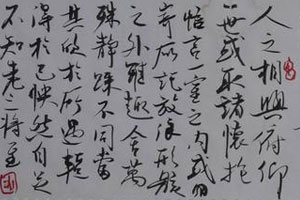 人之相與俯仰
一世或取諸懷抱
悟言一室之内或因
寄所託放浪形骸
之外雖趣舍萬
殊靜躁不同當
其欣於所遇暫
得於己怏然自足
不知老之將至